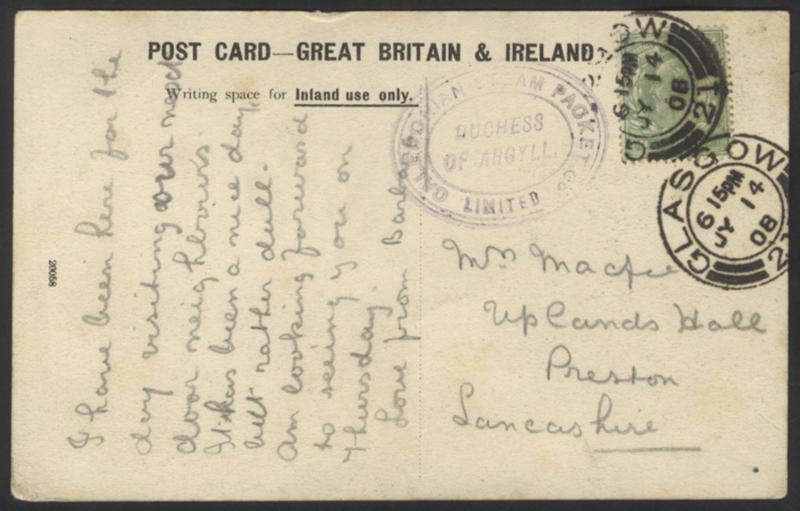 POST CARD—GREAT BRITAIN & IRELAND
Writing space for Inland use only.
CALEDONIAN STEAM PACKET Co.
DUCHESS
OF ARGYLL.
LIMITED
GLASGOW
6 15PM
JY 14
08
21
GLASGOW
6 15PM
JY 14
08
21
I have been here for the
day visiting our next
door neighbours.
It has been a nice day,
but rather dull.
Am looking forward
to seeing you on
Thursday.
Love from Barbara
Mrs Macfee
Uplands Hall
Preston
Lancashire
20058